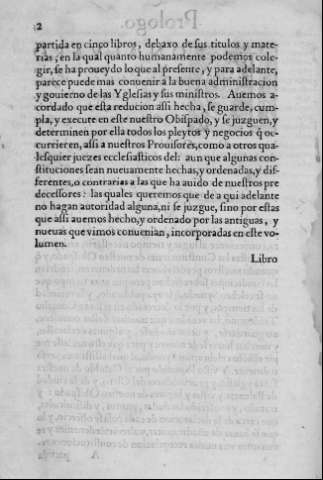 2
partida en cinço libros, debaxo de sus titulos y mate-
rias; en la qual quanto humanamente podemos cole-
gir, se ha proueydo lo que al presente, y para adelante,
parece puede mas conuenir a la buena administracion
y gouierno de las Yglesias y sus ministros. Auemos a-
cordado que esta reducion assi hecha, se guarde, cum-
pla, y execute en este nuestro Obispado, y se juzguen, y
determinen por ella todos los pleytos y negocios q̃ oc-
currieren, assi a nuestros Prouisores, como a otros qua-
lesquier juezes ecclesiasticos del: aun que algunas con-
stituciones sean nueuamente hechas, y ordenadas, y dif-
ferentes, o contrarias a las que ha auido de nuestros pre
decessores: las quales queremos que de a qui adelante
no hagan autoridad alguna, ni se juzgue, sino por estas
que assi auemos hecho, y ordenado por las antiguas, y
nueuas que vimos conuenian, incorporadas en este vo-
lumen.
Libro